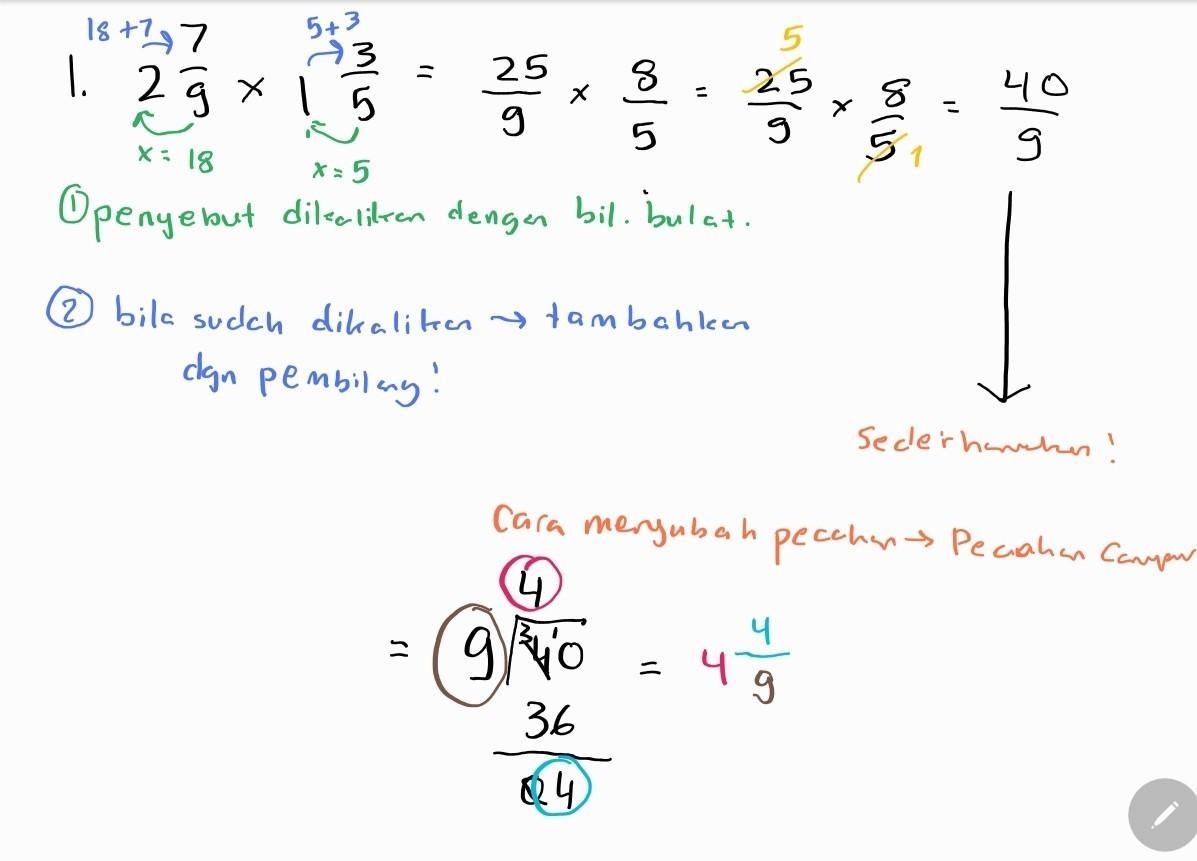 18+7 5+3
1. 2 7/9 x 1 3/5 = 25/9 x 8/5 = 25/9 x 8/5 = 40/9
5 1
x = 18 x = 5
① penyebut dikalikan dengan bil. bulat.
② bila sudah dikalikan → tambahkan
dgn pembilang!
Sederhanakan!
Cara mengubah pecahan → Pecahan Campur
4
= 9 40 = 4 4/9
36
04